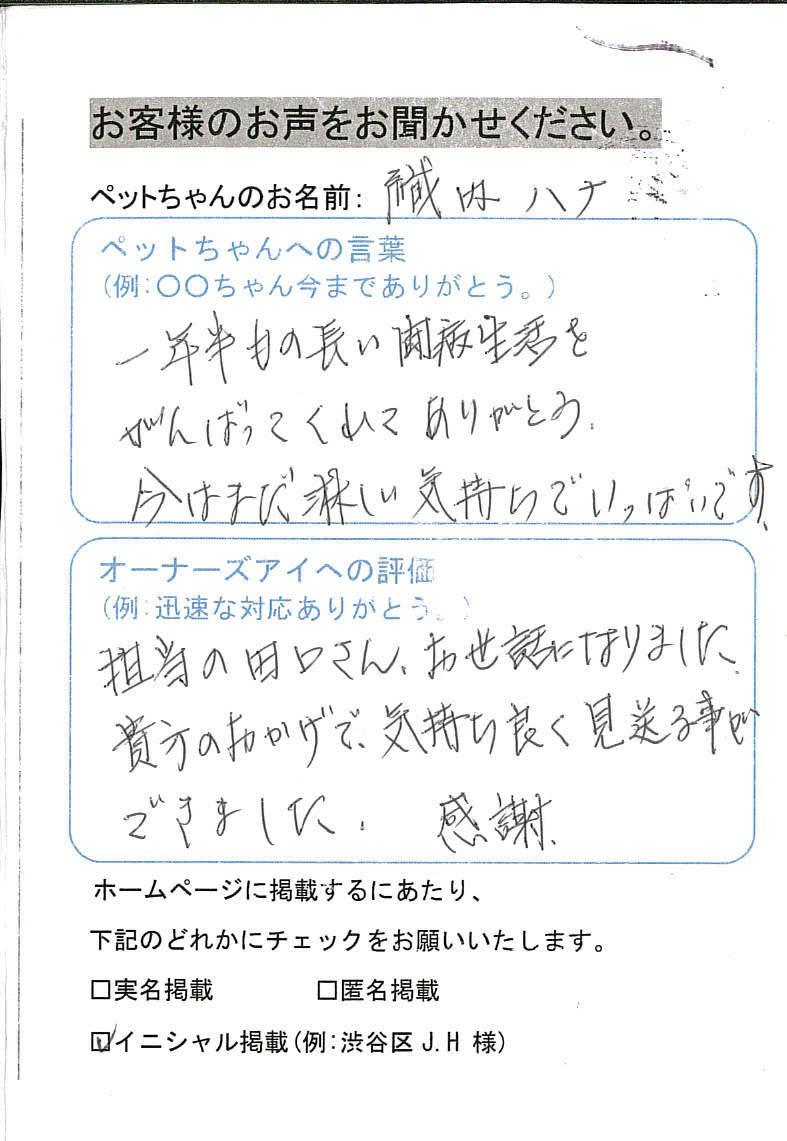 お客様のお声をお聞かせください。
ペットちゃんのお名前: 内 ハナ
ペットちゃんへの言葉
(例:〇〇ちゃん今までありがとう。)
一年半もの長い闘病生活を
がんばってくれてありがとう。
今はまだ淋しい気持ちでいっぱいです、
オーナーズアイへの評価
(例:迅速な対応ありがとう。)
担当の田口さん、お世話になりました、
貴方のおかげで、気持ち良く見送る事が
できました。 感謝、
ホームページに掲載するにあたり、
下記のどれかにチェックをお願いいたします。
□実名掲載 □匿名掲載
☑イニシャル掲載(例:渋谷区 J.H 様)